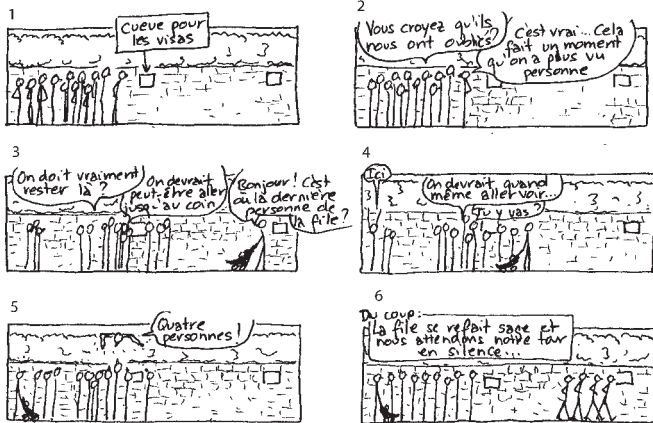 1
Cueue pour
les visas
2
Vous croyez qu'ils
nous ont oubliés?
C'est vrai... Cela
fait un moment
qu'on a plus vu
personne
3
On doit vraiment
rester là?
On devrait
peut-être aller
jusqu'au coin
Bonjour! C'est
où la dernière
personne de
la file?
4
Ici
On devrait quand
même aller voir...
Tu y vas?
5
Quatre
personnes!
6
Du coup:
La file se refait sage et
nous attendons notre tour
en silence...